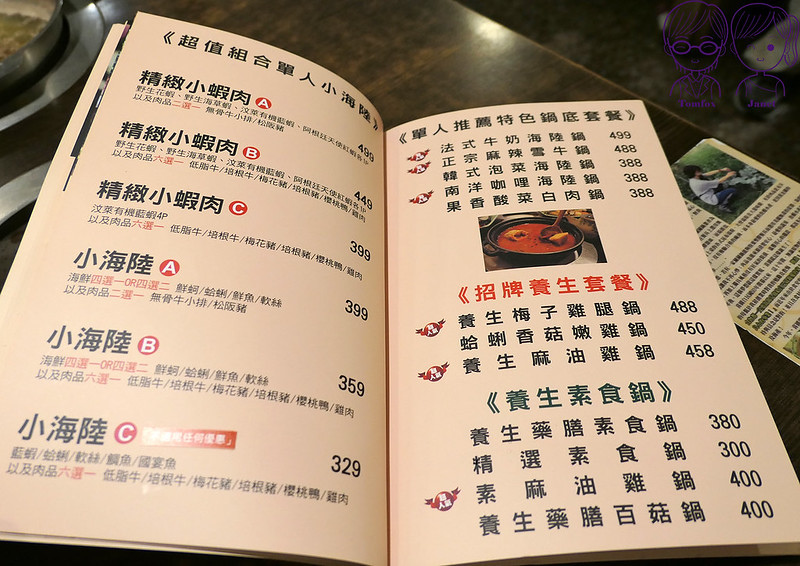 《超值組合單人小海陸》
精緻小蝦肉 A
野生花蝦、野生海草蝦、汶萊有機藍蝦、阿根廷天使紅蝦各1P
以及肉品二選一 無骨牛小排/松阪豬
499
精緻小蝦肉 B
野生花蝦、野生海草蝦、汶萊有機藍蝦、阿根廷天使紅蝦各1P
以及肉品六選一 低脂牛/培根牛/梅花豬/培根豬/櫻桃鴨/雞肉
449
精緻小蝦肉 C
汶萊有機藍蝦4P
以及肉品六選一 低脂牛/培根牛/梅花豬/培根豬/櫻桃鴨/雞肉
399
小海陸 A
海鮮四選一OR四選二 鮮蚵/蛤蜊/鮮魚/軟絲
以及肉品二選一 無骨牛小排/松阪豬
399
小海陸 B
海鮮四選一OR四選二 鮮蚵/蛤蜊/鮮魚/軟絲
以及肉品六選一 低脂牛/培根牛/梅花豬/培根豬/櫻桃鴨/雞肉
359
小海陸 C 任何優惠」
藍蝦/蛤蜊/軟絲/鯛魚/國宴魚
以及肉品六選一 低脂牛/培根牛/梅花豬/培根豬/櫻桃鴨/雞肉
329
《單人推薦特色鍋底套餐》
法式牛奶海陸鍋 499
正宗麻辣雪牛鍋 488
韓式泡菜海陸鍋 388
南洋咖哩海陸鍋 388
果香酸菜白肉鍋 388
《招牌養生套餐》
養生梅子雞腿鍋 488
蛤蜊香菇嫩雞鍋 450
養生麻油雞鍋 458
《養生素食鍋》
養生藥膳素食鍋 380
精選素食鍋 300
素麻油雞鍋 400
養生藥膳百菇鍋 400